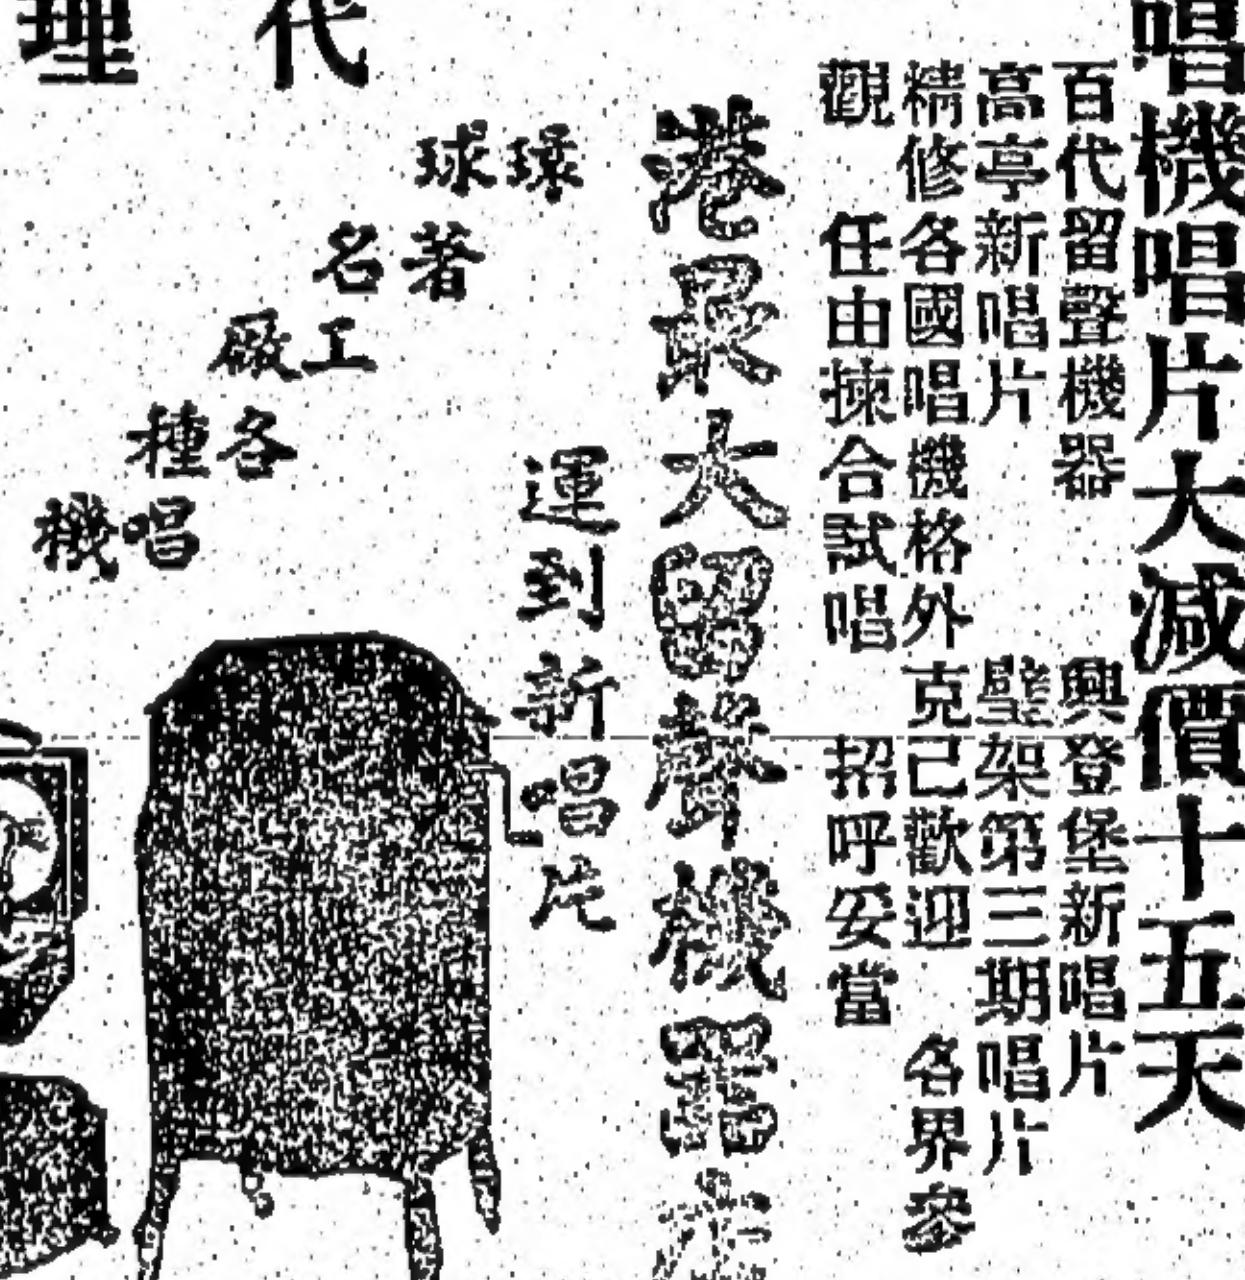 唱機唱片大減價十五天
百代留聲機器 興登堡新唱片
高亭新唱片 壁架第三期唱片
精修各國唱機格外克己歡迎 各界參
觀 任由揀合試唱 招呼妥當
港最大留聲機器
運到新唱片
環球
著名
工廠
各種
唱機
代理